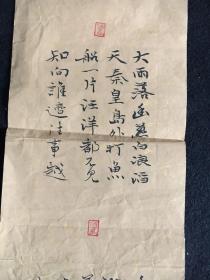 大雨落幽燕白浪滔
天秦皇島外打魚
船一片汪洋都不見
知向誰邊往事越